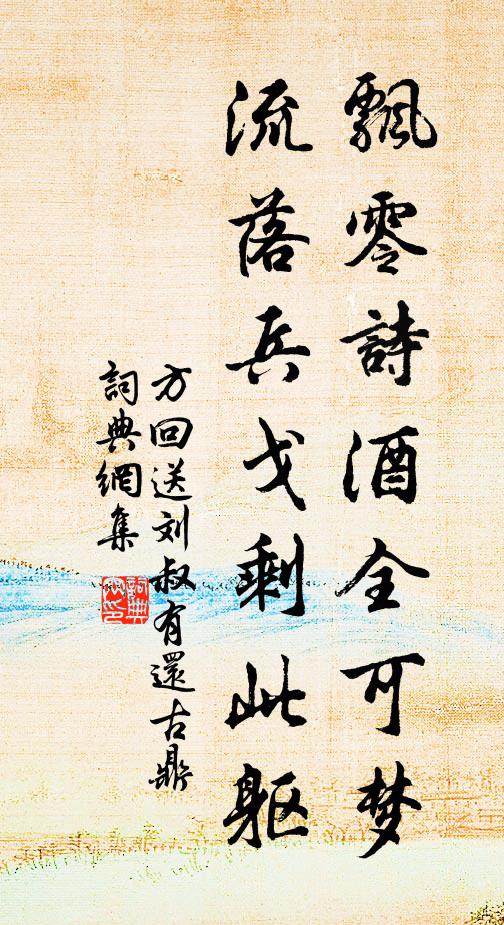 飄零詩酒全可梦
流落兵戈剩此躯
方回送刘叔有還古鼎
詞典網集